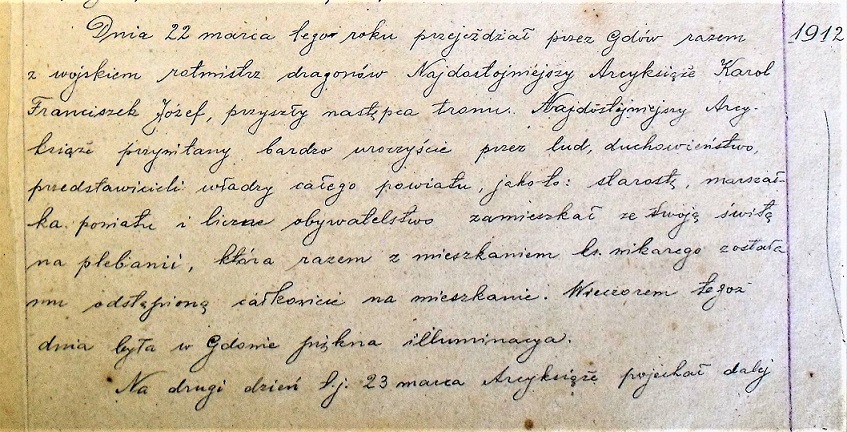 Dnia 22 marca tegoż roku przejeżdżał przez Gdów razem 1912
z wojskiem rotmistrz dragonów Najdostojniejszy Arcyksiąże Karol
Franciszek Józef, przyszły następca tronu. Najdostojniejszy Arcy-
książe przywitany bardzo uroczyście przez lud, duchowieństwo,
przedstawicieli władzy całego powiatu, jakoto: starostę, marszał-
ka powiatu i liczne obywatelstwo zamieszkał ze swoją świtą
na plebanii, która razem z mieszkaniem ks. wikarego została
mu odstąpioną całkowicie na mieszkanie. Wieczorem tegoż
dnia była w Gdowie piękna illuminacya.
Na drugi dzień t.j. 23 marca Arcyksiąże pojechał dalej